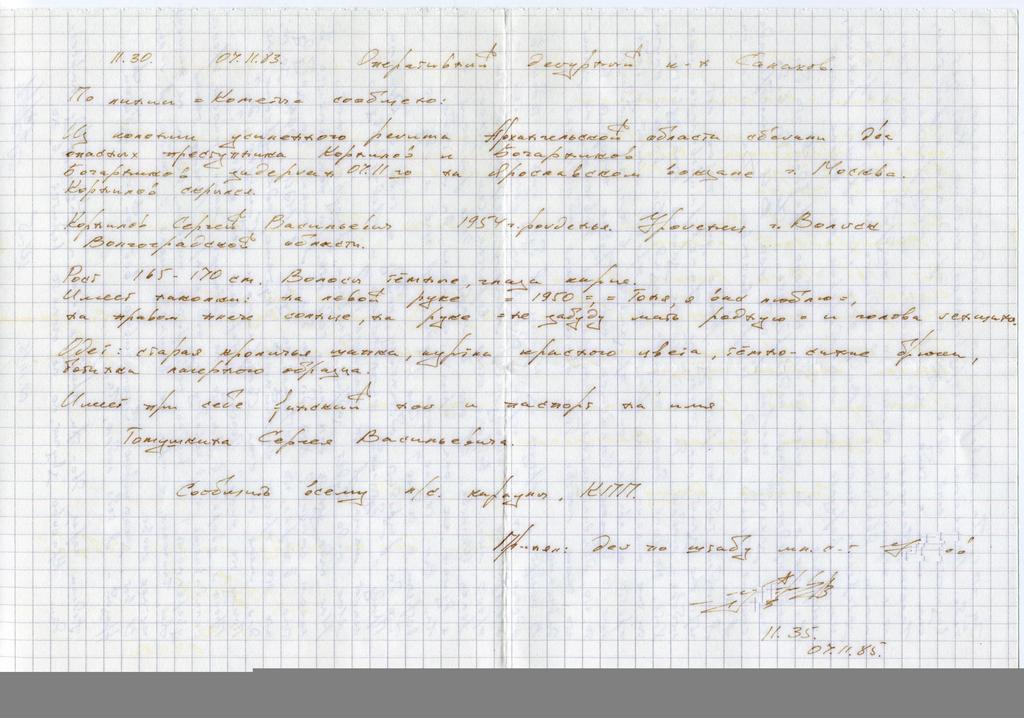 11.30. 07.11.83. Оперативный дежурный к-н Санахов.
По линии "Комета" сообщено:
Из колонии усиленного режима Архангельской области сбежали два
опасных преступника Корнилов и Бочарников
Бочарников задержан 07.11 го на Ярославском вокзале г. Москва.
Корнилов скрылся.
Корнилов Сергей Васильевич 1954 г. рожденья. Уроженец г. Волжск
Волгоградской области.
Рост 165-170 см. Волосы тёмные, глаза карие.
Имеет наколки: на левой руке = 1950 =, = Тоня, я вас люблю =,
на правом плече солнце, на руке = не забуду мать родную = и голова женщины.
Одет: старая кроличья шапка, куртка красного цвета, тёмно-синие брюки,
ботинки лагерного образца.
Имеет при себе финский нож и паспорт на имя
Сергея Васильевича.
Сообщить всему л/с. караулы, КПП.
Принял: деж по штабу мл. с-т
11.35.
07.11.85.